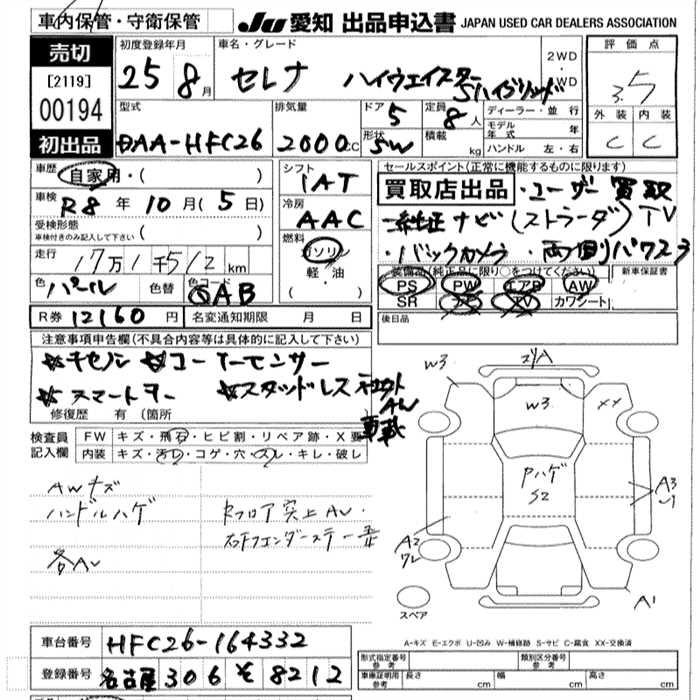 車内保管・守衛保管
JU 愛知 出品申込書 JAPAN USED CAR DEALERS ASSOCIATION
売切
[2119]
00194
初出品
初度登録年月
25 8月
車名・グレード
セレナ ハイウェイスター
Sハイブリッド
2WD
・
4WD
評価点
3.5
外装 内装
C C
型式
DAA-HFC26
排気量
2000cc
ドア
5
形状
SW
定員
8人
積載
kg
ディーラー・並行
モデル年式 年
ハンドル 左・右
車歴
自家用・( )
車検
R8年10月(5日)
受検形態
車検付きのみ記入して下さい ( )
走行
17万1千512km
色
パール
色替
色コード
QAB
シフト
IAT
冷房
AAC
燃料
ガソリン
軽・油
( )
R券 12160円 名変通知期限 月 日
セールスポイント(正常に機能するものに限ります)
買取店出品・ユーザー買取
・純正ナビ(ストラーダ)TV
・バックカメラ・両側パワスラ
装備品(純正品に限り○をつけてください)
PS PW エアB AW
SR ナビ TV カワシート
新車保証書
後日品
注意事項申告欄(不具合内容等は具体的に記入して下さい)
コーナーセンサー
スマートキー スタッドレス
AW
車載
修復歴 有(箇所
検査員
記入欄
FW キズ・飛石・ヒビ割・リペア跡・X要
内装 キズ・汚レ・コゲ・穴・スレ・キレ・破レ
AWキズ
ハンドルハゲ
各AU
Rフロア突上AU・
右Fフェンダーステー歪
W3
W3
XX
Pハゲ
S2
A3
A2
A1
スペア
A-キズ E-エクボ U-凹み W-補修跡 S-サビ C-腐食 XX-交換済
車台番号 HFC26-164332
登録番号 名古屋 306 そ 8212
形式指定番号
参考
類別区分番号
参考
車庫証明用
参考
長さ cm 幅 cm 高さ cm